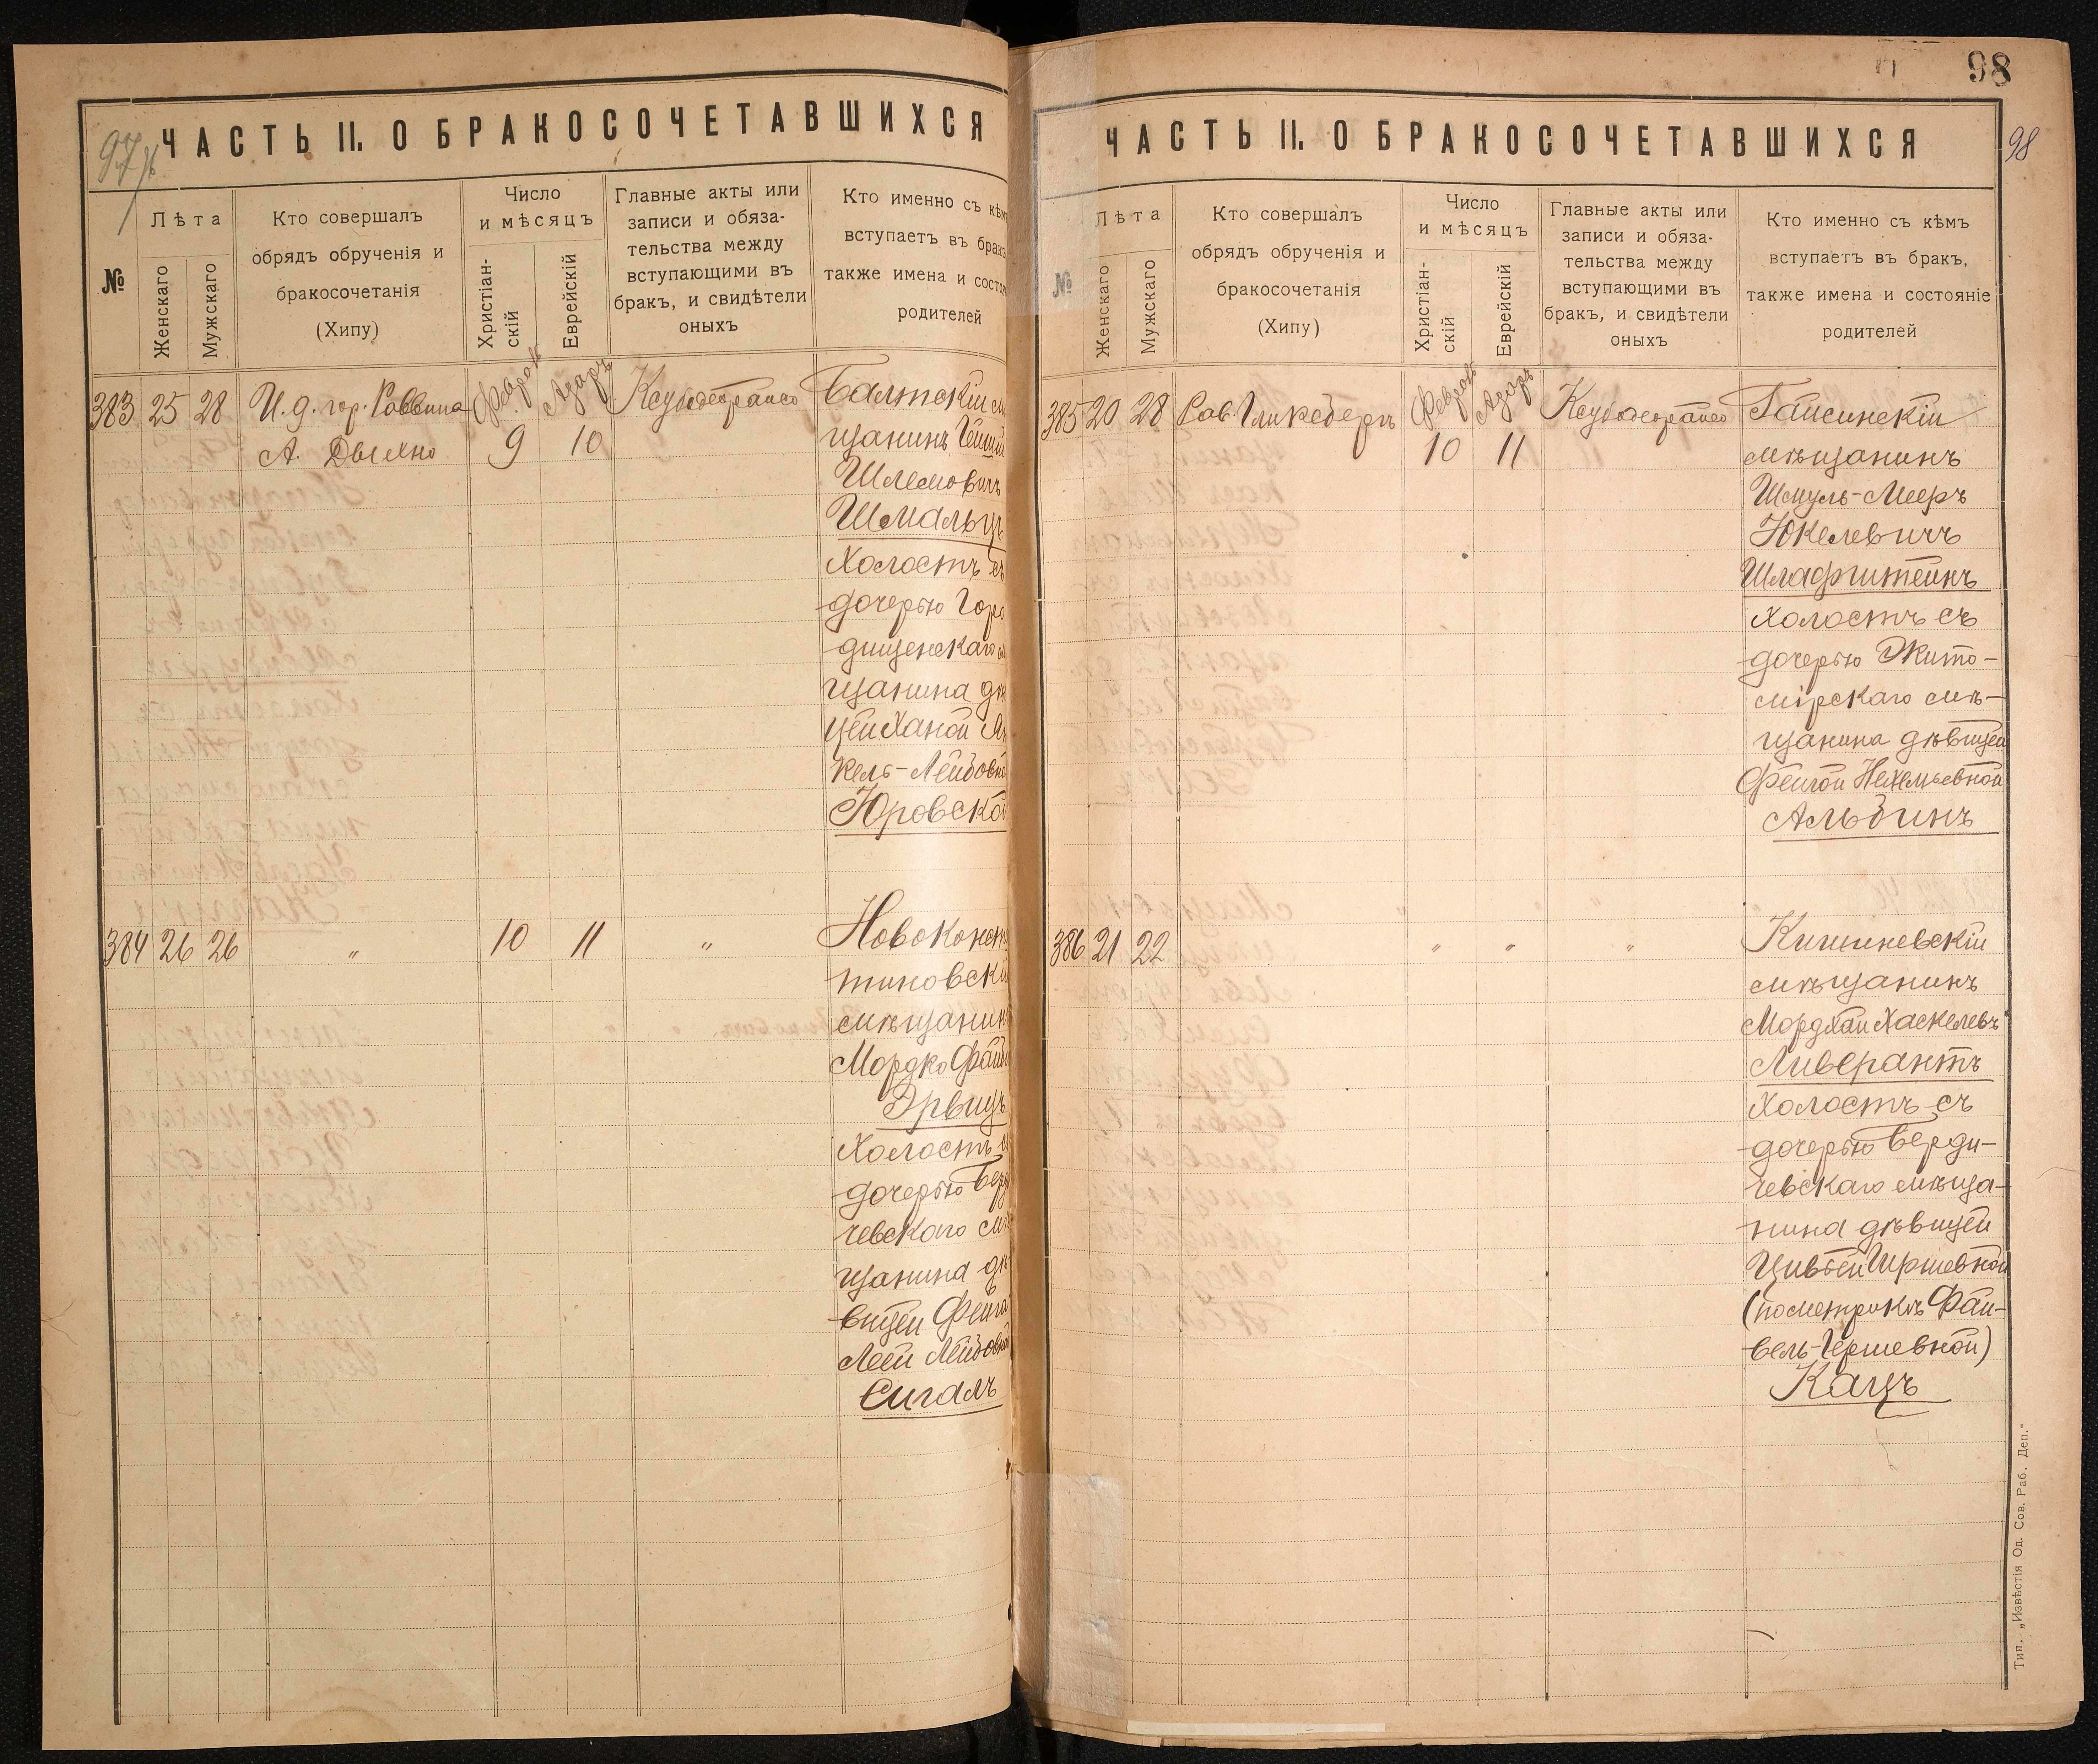 97
ЧАСТЬ II. О БРАКОСОЧЕТАВШИХСЯ
№
Лѣта
Женскаго
Мужскаго
Кто совершалъ
обрядъ обрученія и
бракосочетанія
(Хипу)
Число
и мѣсяцъ
Христіан-
скій
Еврейскій
Главные акты или
записи и обяза-
тельства между
вступающими въ
бракъ, и свидѣтели
оныхъ
Кто именно съ кѣм
вступаетъ въ бракъ
также имена и состоя
родителей
383 25 28 И. д. гор. Раввина Адаръ Балтскій м
А. 9 10 щанинъ
Шлемовичъ
Шмальцъ
Холостъ съ
дочерью Горо
дищенскаго м
щанина дѣ
цей Ханой Ян
кель-Лейбовн
Юровской
384 26 26 " 10 11 " Новоконст
тиновскі
мѣщанин
Мордко
Эрвицъ
Холостъ с
дочерью Берд
чевскаго мѣ
щанина дѣ
вицей Фейга
Леей Лейбовной
Сигалъ
98
98
ЧАСТЬ II. О БРАКОСОЧЕТАВШИХСЯ
№
Лѣта
Женскаго
Мужскаго
Кто совершалъ
обрядъ обрученія и
бракосочетанія
(Хипу)
Число
и мѣсяцъ
Христіан-
скій
Еврейскій
Главные акты или
записи и обяза-
тельства между
вступающими въ
бракъ, и свидѣтели
оныхъ
Кто именно съ кѣмъ
вступаетъ въ бракъ,
также имена и состояніе
родителей
385 20 28 Рав. Гликсбергъ Адаръ Гайсинскій
10 11 мѣщанинъ
Шмуль-Мееръ
Юкелевичъ
Шлафштейнъ
Холостъ съ
дочерью Жито-
мірскаго мѣ-
щанина дѣвицей
Фейгой Нехемьевной
Альбинъ
386 21 22 " " " Кишиневскій
мѣщанинъ
Мордхай Хаскелевъ
Ливерантъ
Холостъ съ
дочерью Берди-
чевскаго мѣща-
нина дѣвицей
Цивьей Иршевной
(по метрикѣ Фай-
вель-Гершевной)
Кацъ
Тип. „Извѣстія Од. Сов. Раб. Деп."